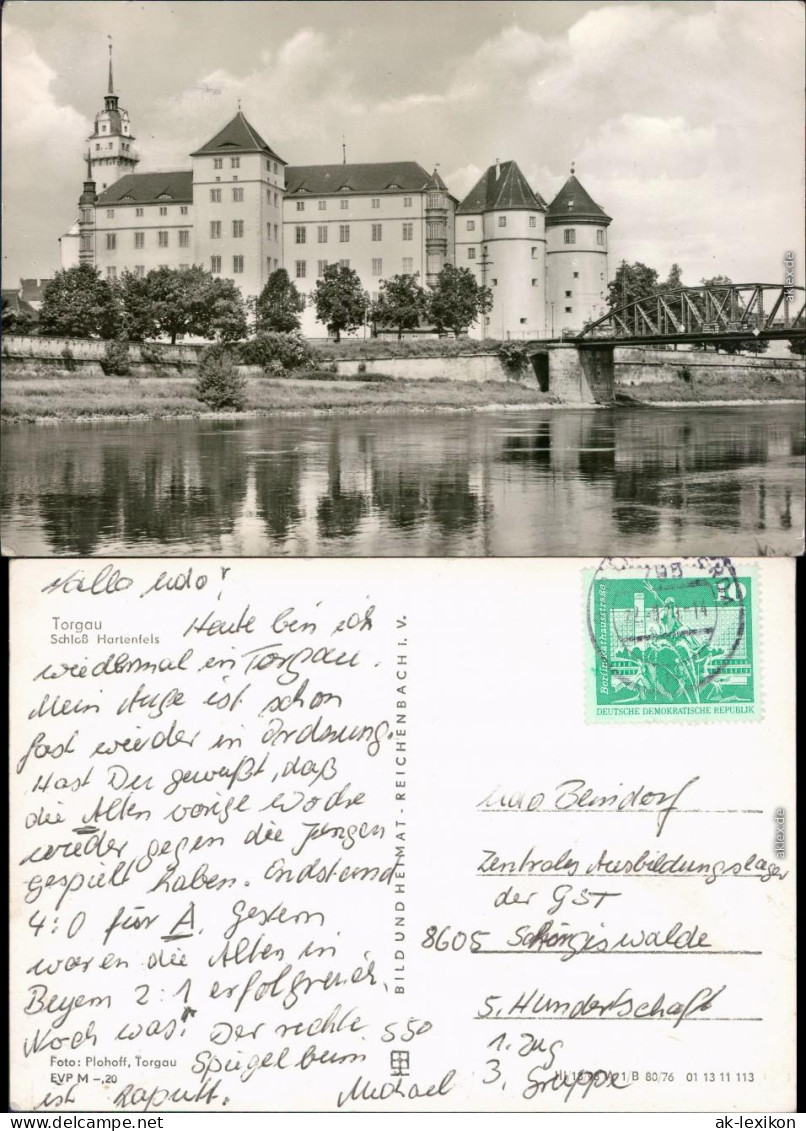 aklex.de
Hallo Udo!
Torgau
Schloß Hartenfels
Heute bin ich
wiedermal in Torgau.
Mein Auge ist schon
fast wieder in Ordnung.
Hast Du gewußt, daß
die Alten vorige Woche
wieder gegen die Jungen
gespielt haben. Endstand
4:0 für A. Gestern
waren die Alten in
Beyern 2:1 erfolgreich.
Noch was! Der rechte
Spiegel beim S50
ist kaputt. Michael
Foto: Plohoff, Torgau
EVP M -,20
BILD UND HEIMAT · REICHENBACH I. V.
795
Berlin Rathausstraße
10
DEUTSCHE DEMOKRATISCHE REPUBLIK
Udo Beindorf
Zentrales Ausbildungslager
der GST
8605 Schirgiswalde
5. Hundertschaft
1. Zug
3. Gruppe
B 80/76 01 13 11 113
aklex.de
www.ak-ansichtskarten.de
ak-lexikon.com